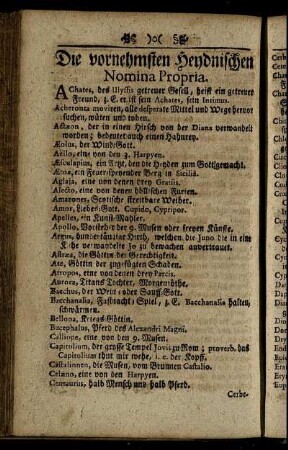 Die vornehmsten Heydnischen
Nomina Propria.
AChates, des Ulyssis getreuer Gesell, heist ein getreuer
Freund, z. E. er ist sein Achates, sein Intimus.
Acheronta moviren, alle desperate Mittel und Wege hervor
suchen, wüten und toben.
Actæon, der in einen Hirsch von der Diana verwandelt
worden; bedeutet auch einen Hahnrey.
Æolus, der Wind-Gott.
Aëllo, eine von den 3. Harpyen.
Æsculapius, ein Artzt, den die Heyden zum Gott gemacht.
Ætna, ein Feuer-speyender Berg in Sicilia.
Aglaja, eine von denen drey Gratiis.
Alecto, eine von denen höllischen Furien.
Amazones, Scytische streitbare Weiber.
Amor, Liebes-Gott. Cupido, Cypripor.
Apelles, ein Kunst-Mahler.
Apollo, Vorsteher der 9. Musen oder freyen Künste.
Argus, hundertäugige Hirth, welchen die Juno die in eine
Kuhe verwandelte Jo zu bewachen anvertrauet.
Astræa, die Göttin der Gerechtigkeit.
Ate, Göttin der zugefügten Schaden.
Atropos, eine von denen drey Parcis.
Aurora, Titans Tochter, Morgenröthe.
Bacchus, der Wein- oder Sauff-Gott.
Bacchanalia, Fastnacht-Spiel, z. E. Bacchanalia halten,
schwärmen.
Bellona, Kriegs-Göttin.
Bucephalus, Pferd des Alexandri Magni.
Calliope, eine von den 9. Musen.
Capitolium, der grosse Tempel Jovis zu Rom; proverb. das
Capitolium thut mir wehe, i. e. der Kopff.
Castalinnen, die Musen, vom Brunnen Castalio.
Celæno, eine von den Harpyen.
Centaurus, halb Mensch und halb Pferd.
Cerbe-